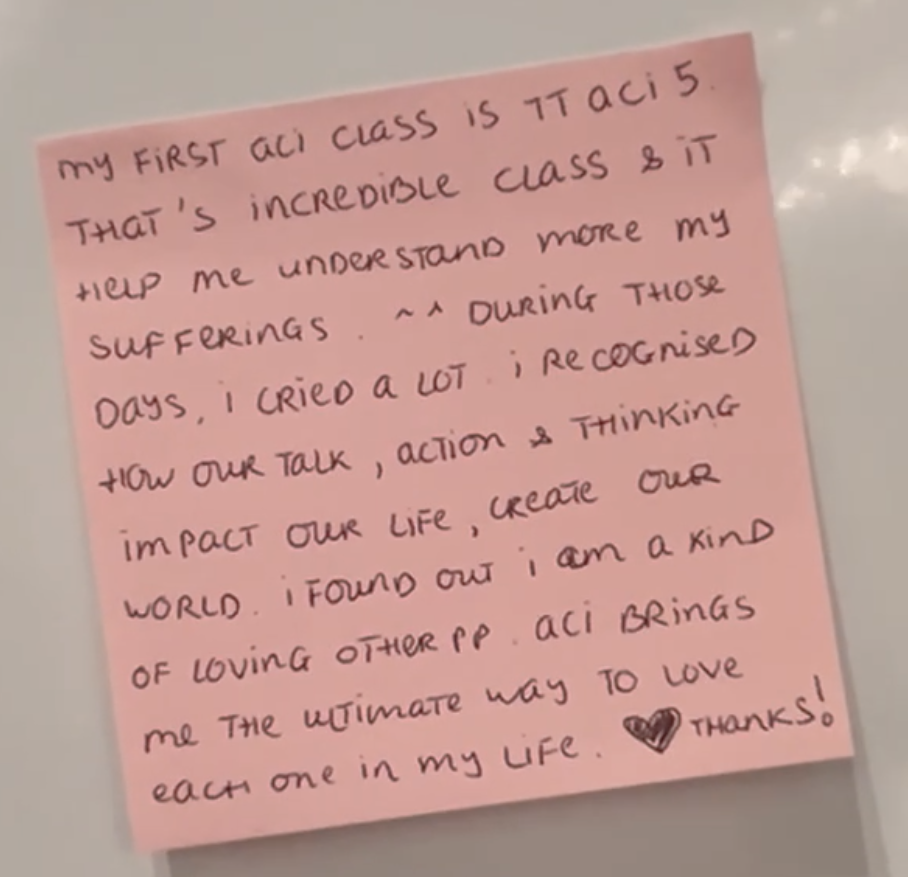 my FIRST aci CLASS is TT aci 5.
THAT'S iNCREDIBLE CLASS & iT
HELP me UNDERSTAND more my
SUFFERINGS. ^^ DURING THOSE
DAYS, i CRIED a LOT. i RECOGNISED
HOW OUR TALK, ACTION & THINKING
IMPACT OUR LIFE, CREATE OUR
WORLD. i FOUND OUT i am a KIND
OF LOVING OTHER PP. aci BRINGS
me THE ULTIMATE way TO LOVE
each one in my LIFE. ♥ THANKS!